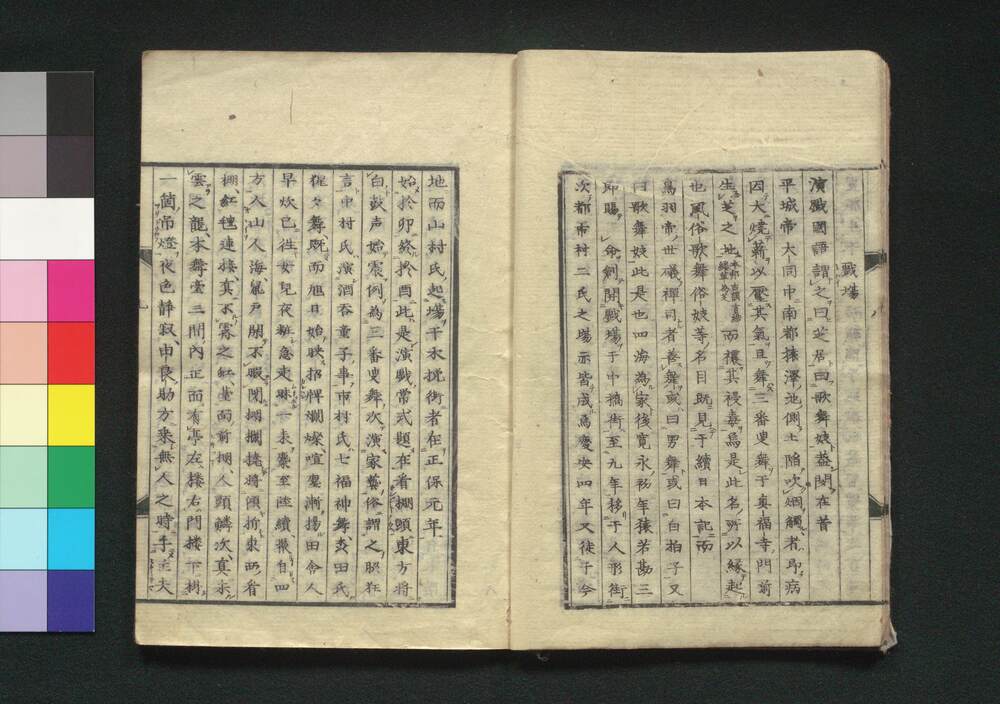 戲場
演戲國語謂之曰芝居曰歌舞妓蓋聞在昔
平城帝大同中南都猿澤池側土陷吹烟觸者即病
因大燒薪以壓其氣且舞三番叟舞于興福寺門前
生芝之地而禳其祲毒焉是此名所以緣起
也風俗歌舞俗妓等名目既見于續日本記而
鳥羽帝世礒禪司者善舞或曰男舞或曰白拍子又
曰歌舞妓此是也四海為家後寬永初年猿若勘三
即賜命創開戲場于中橋街至九年移于人形街
次都市村二氏之場亦皆成焉慶安四年又徙于今
地而山村氏起場于木挽街者在正保元年
始於卯終於酉此是演戲常式題在看棚頭東方將
白鼓聲始震例為三番叟舞次演家藝俗謂之脇狂
言中村氏演酒吞童子事市村氏七福神舞森田氏
猩々舞既而旭日始映招牌爛燦喧聲漸揚田舍人
早炊已往女兒夜粧急走咻一表棗至陸續散自四
方入山人海鼠戶開不暇開棚欄擠將傾拆東西看
棚紅氈連接真不霽之虹臺面前棚人頭鱗次真未
雲之龍本舞臺三間內正面有亭左樓右門樓下掛
一箇吊燈夜色靜寂由良助方乘無人之時手主夫